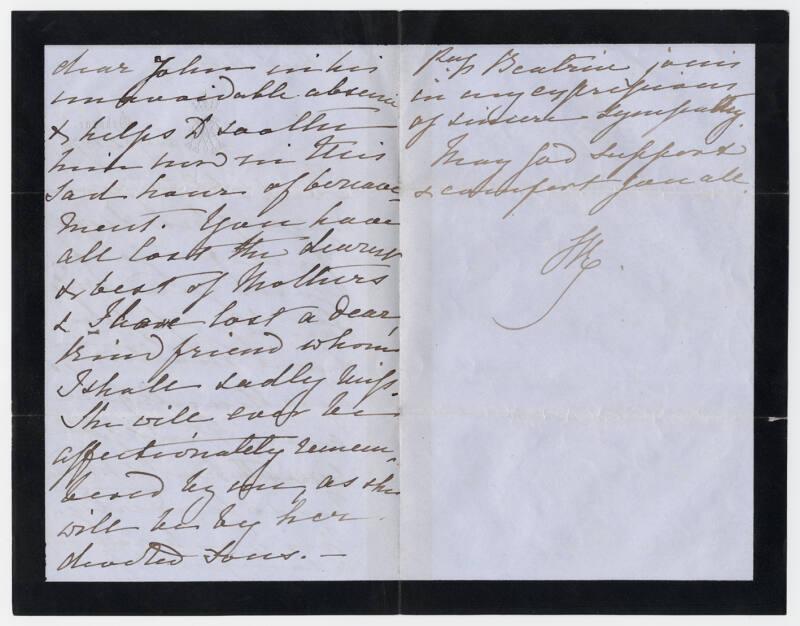 dear John in his
unavoidable absence
& helps to soothe
him now in this
sad hour of bereave-
ment. You have
all lost the dearest
& best of Mothers
& I have lost a dear,
kind friend whom
I shall sadly miss.
She will ever be
affectionately remem-
bered by me, as she
will be by her
devoted Sons. —
Beatrice joins
in my expressions
of sincere sympathy.
May God support
& comfort you all.